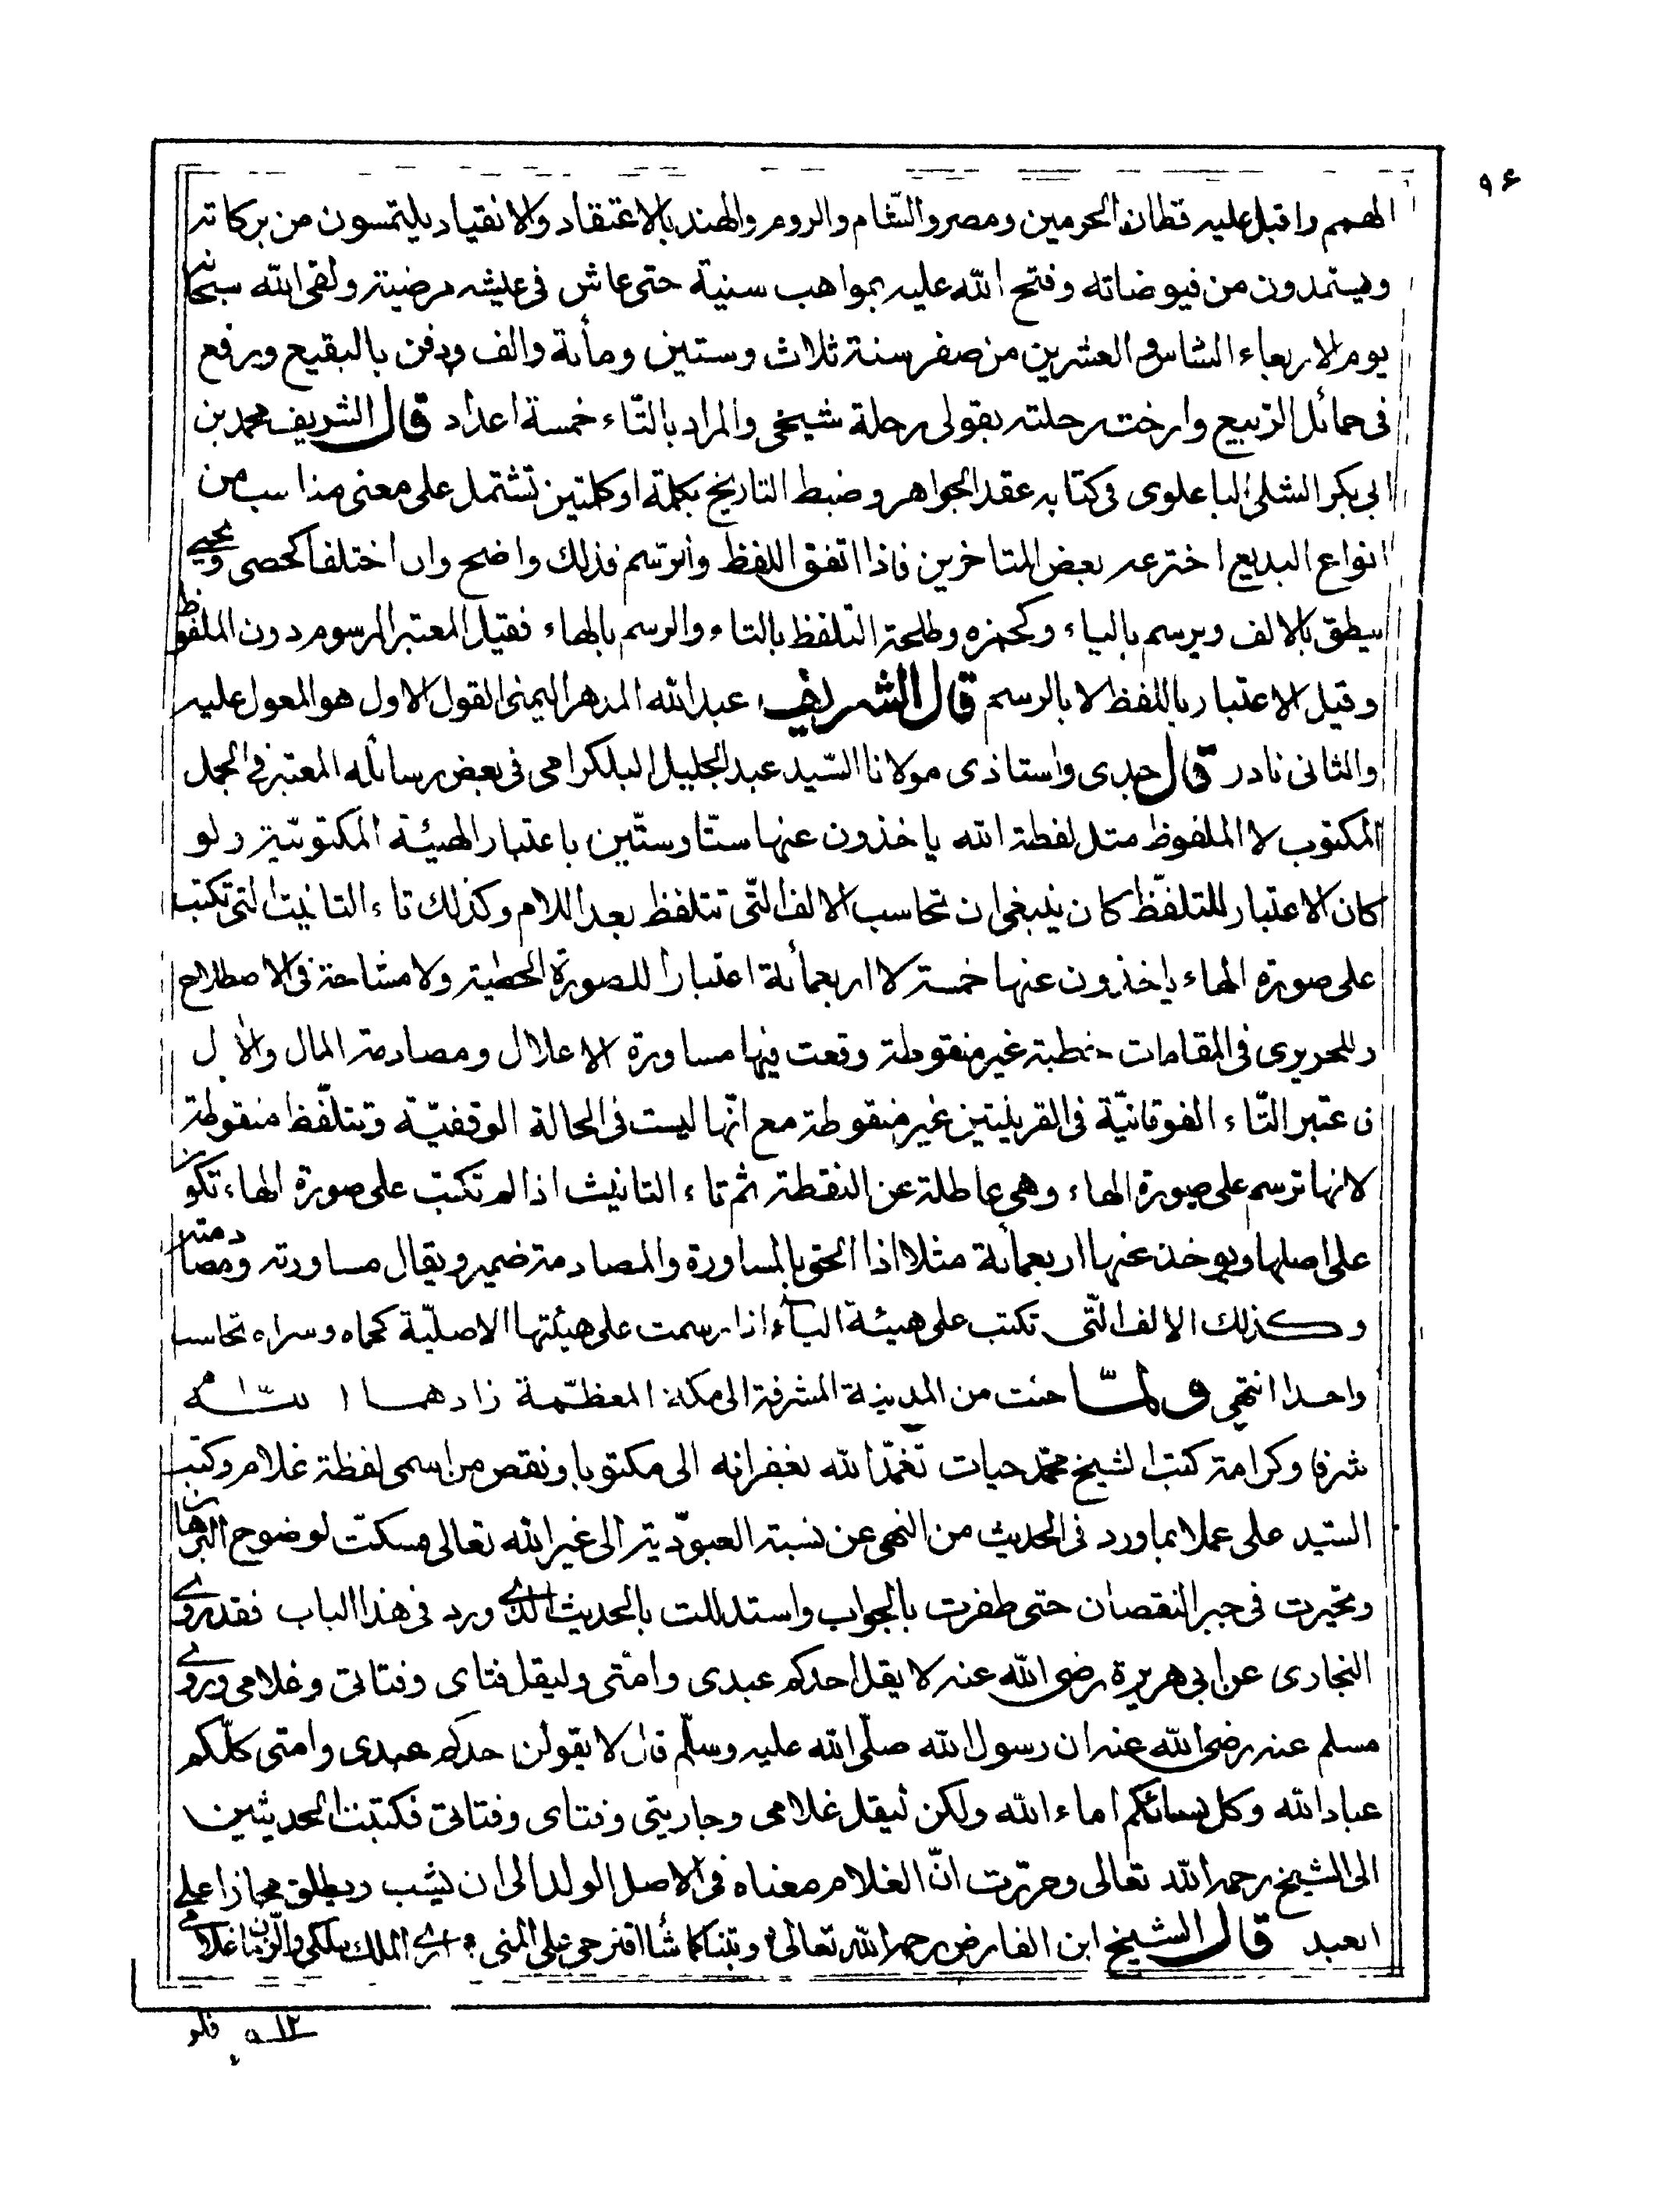 ٩۶
الهمم واقبل عليه قطان الحرمين ومصر والشّام والروم والهند بالاعتقاد والانقياد يلتمسون من بركاته
ويستمدون من فيوضاته وفتح الله عليه بمواهب سنية حتى عاش فى عليشه مرضية ولقى الله سبحانه
يوم الاربعاء السادس والعشرين من صفر سنة ثلاث وستين ومأئة والف ودفن بالبقيع ورفع
فى حمائل الربيع وارخت رحلته بقولى رحلة شيخى والمراد بالتّاء خمسة اعداد قال الشريف محمد بن
ابى بكر الشلى الباعلوى فى كتابه عقد الجواهر وضبط التاريخ بكلمة او كلمتين تشتمل على معنى مناسب من
انواع البديع اخترعه بعض المتاخرين فاذا اتفق اللفظ والرّسم فذلك واضح وان اختلفا كحصى ويحيى
ينطق بالالف ويرسم بالياء وكحمزه وطلحة التلفظ بالتاء والرسم بالهاء فقيل المعتبر المرسوم دون الملفوظ
وقيل الاعتبار باللفظ لا بالرسم قال الشريف عبد الله المدهر اليمنى القول الاول هو المعول عليه
والثانى نادر قال جدى واستاذى مولانا السّيد عبد الجليل البلكرامى فى بعض رسائله المعتبر فى الجمل
المكتوب لا الملفوظ مثل لفظة الله ياخذون عنها ستّا وستّين باعتبار الهيئة المكتوبيّة ولو
كان الاعتبار للتلفّظ كان ينبغى ان تحاسب الالف الّتى تتلفظ بعد اللام وكذلك تاء التانيث التى تكتب
على صورة الهاء ياخذون عنها خمسة لا اربعمأئة اعتبارا للصورة الخطية ولا مشاحة فى الاصطلاح
وللحريرى فى المقامات خطبة غير منقوطة وقعت فيها مساورة الاعلال ومصادمة المال والأل
فاعتبر التّاء الفوقانيّة فى القرينتين غير منقوطة مع انّها ليست فى الحالة الوقفيّة وتتلّفظ منقوطة
لانها ترسم على صورة الهاء وهى عاطلة عن النقطة ثم تاء التانيث اذا لم تكتب على صورة الهاء تكون
على اصلها ويوخذ عنها اربعمأئة مثلا اذا الحق بالمساورة والمصادمة ضمير ويقال مساورته ومصادمته
وكذلك الالف الّتى تكتب على هيئة الياء اذا رسمت على هيئتها الاصليّة كحماه وسراه تحاسب
واحدا انتهى ولمّا جئت من المدينة المشرفة الى مكة المعظّمة زادهما الله
شرفا وكرامة كتب الشيخ محمّد حيات تغمّد الله بغفرانه الى مكتوبا ونقص من اسمى لفظة غلام وكتب
السّيد على عملا بما ورد فى الحديث من النهى عن نسبة العبوديّة الى غير الله تعالى فسكتّ لوضوح البرهان
وتحيرت فى جبر النقصان حتى ظفرت بالجواب واستدللت بالحديث الذى ورد فى هذا الباب فقد روى
البخارى عن ابى هريرة رضى الله عنه لا يقل احدكم عبدى وامّتى وليقل فتاى وفتاتى وغلامى وروى
مسلم عنه رضى الله عنه ان رسول الله صلّى الله عليه وسلّم قال لا يقولن حدكم عبدى وامتى كلّكم
عباد الله وكل نسائكم اماء الله ولكن ليقل غلامى وجاريتى وفتاى وفتاتى فكتبت الحديثين
الى الشيخ رحمه الله تعالى وحررت انّ الغلام معناه فى الاصل الولد الى ان يشب ويطلق مجازا على
العبد قال الشيخ ابن الفارض رحمه الله تعالى وبتنا كما شأ اقتراحى على المنى ارى الملك ملكى والزمان غلامى
قلو